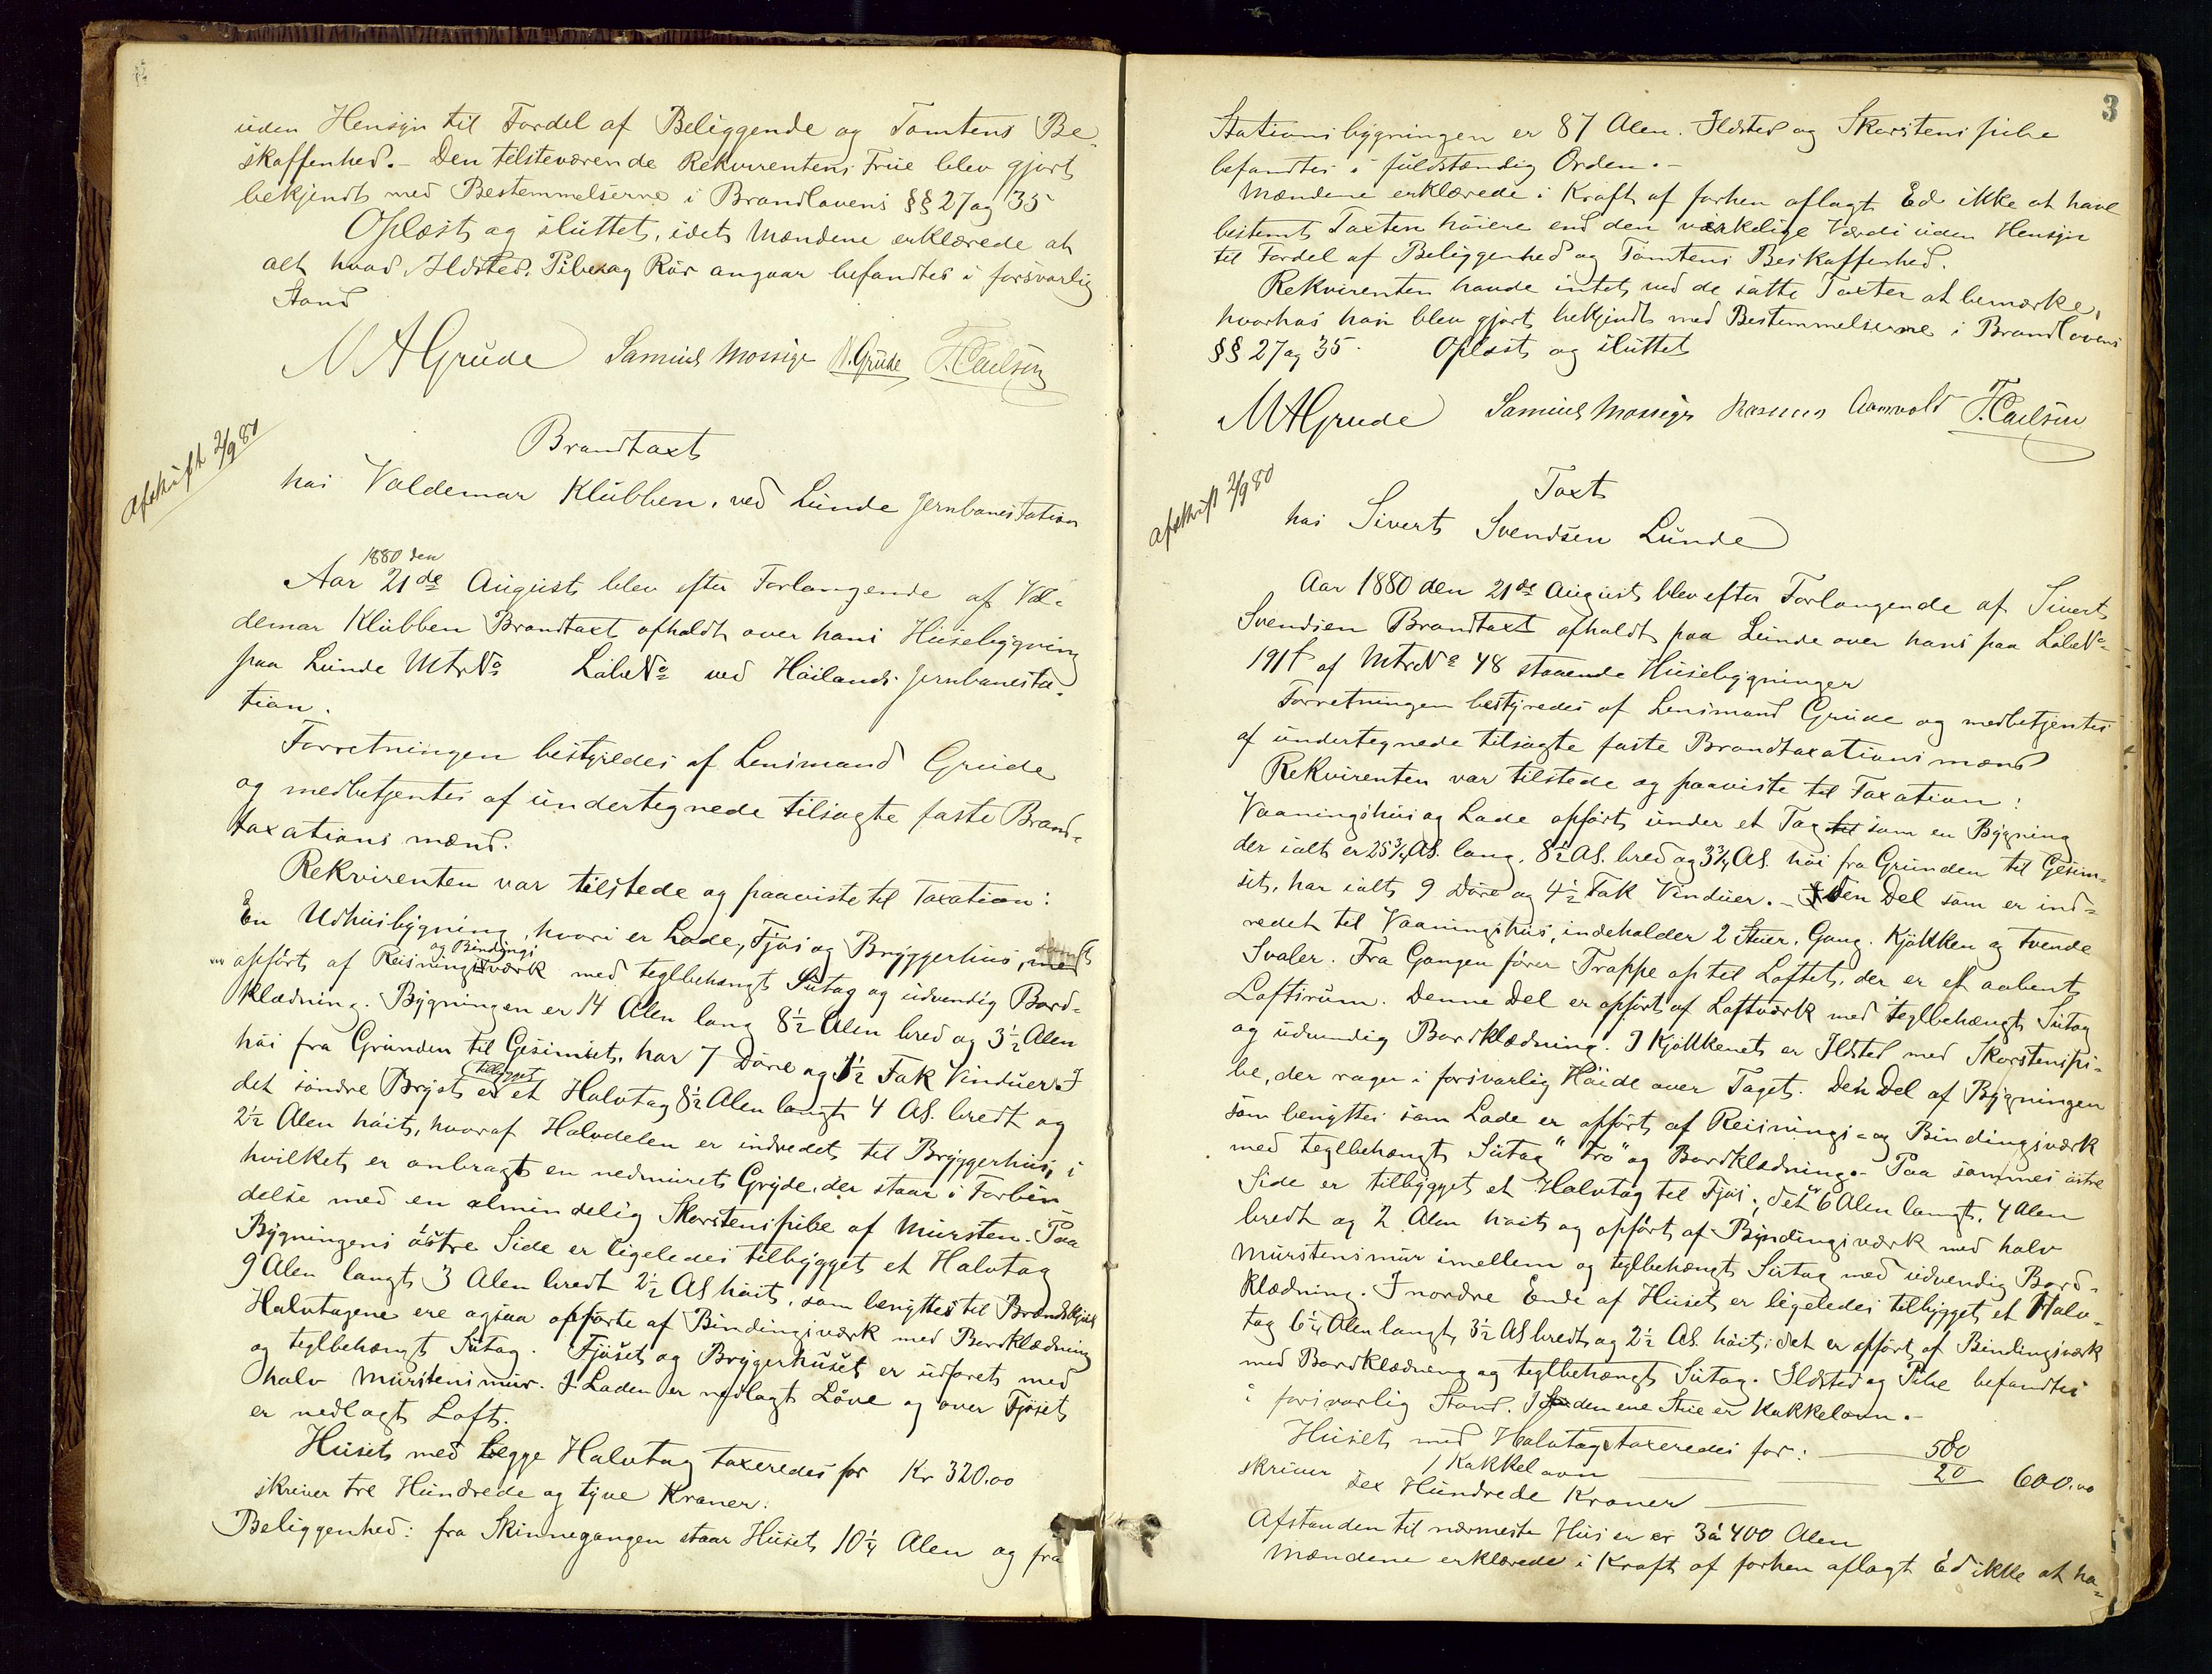 uden Hensyn til Fordel af Beliggende og Tomtens Be-
skaffenhed.- Den tilsteværende Rekvirentens Frue blev gjort
bekjendt med Bestemmelserne i Brandlovens §§ 27 og 35
Oplæst og sluttet, idet Mændene erklærede at
alt hvad Ildsted, Piber og Rör angaar befandtes i forsvarlig
Stand
M A Grude Samuel Mossige N. Grude T. Carlsen
Afskrift 2/9 80
Brandtaxt
hos Valdemar Klubben, ved Lunde Jernbanestation
1880 den
Aar 21de August blev efter Forlangende af Val-
demar Klubben Brandtaxt afholdt over hans Husebygning
paa Lunde Mtr No Løbe No ved Höilands Jernbanesta-
tion.
Forretningen bestyredes af Lensmand Grude
og medbetjentes af undertegnede tilsagte faste Brand-
taxationsmænd.
Rekvirenten var tilstede og paaviste til Taxation:
En Udhusbygning, hvori er Lade, Fjös og Bryggerhus, med
og Bindings
opfört af Reisningsværk med teglbehængt Sutag og udvendig Bord-
klædning. Bygningen er 14 Alen lang 8½ Alen bred og 3½ Alen
höi fra Grunden til Gesimset, har 7 Döre og 1½ Fak Vinduer. I
tilbygget
det söndre Bryst er et Halvtag 8½ Alen langt 4 Al. bredt og
2½ Alen höit, hvoraf Halvdelen er indredet til Bryggerhus, i
hvilket er anbragt en nedmuret Gryde, der staar i Forbin-
delse med en almindelig Skorstenspibe af Mursten. Paa
Bygningens östre Side er ligeledes tilbygget et Halvtag
9 Alen langt 3 Alen bredt 2½ Al höit, som benyttes til Brændskjul
Halvtagene ere ogsaa opförte af Bindingsværk med Bordklædning
og teglbehængt Sutag. Fjöset og Brygerhuset er udforet med
halv Murstensmur. I Laden er nedlagt Löve og over Fjöset
er nedlagt Loft.
Huset med begge Halvtag taxeredes for Kr 320.00
skriver tre Hundrede og tyve Kroner.
Beliggenhed: fra Skinnegangen staar Huset 10¼ Alen og fra
3
Stationsbygningen er 87 Alen. Ildsted og Skorstenspibe
befandtes i fuldstændig Orden.-
Mændene erklærede i Kraft af forhen aflagt Ed ikke at have
bestemt Taxten höiere end den virkelige Værdi uden Hensyn
til Fordel af Beliggenhed og Tomtens Beskaffenhed.
Rekvirenten havde intet ved de satte Taxter at bemærke,
hvorhos han blev gjort bekjendt med Bestemmelserne i Brandlovens
§§ 27 og 35. Oplæst og sluttet
M A Grude Samuel Mossige Rasmus Aamvold T. Carlsen
Afskrift 2/9 80
Taxt
hos Sivert Svendsen Lunde
Aar 1880 den 21de August blev efter Forlangende af Sivert
Svendsen Brandtaxt afholdt paa Lunde over hans paa Löbe No
191f af Mtr No 48 staaende Husebygninger
Forretningen bestyredes af Lensmand Grude og medbetjentes
af undertegnede tilsagte faste Brandtaxationsmænd
Rekvirenten var tilstede og paaviste til Taxation:
Vaaningshus og Lade opfört under et Tag til som en Bygning
der ialt er 25¾ Al. lang, 8½ Al. bred og 3¾ Al. höi fra Grunden til Gesim-
set, har ialt 9 Döre og 4½ Fak Vinduer.- Den Del som er ind-
redet til Vaaningshus, indeholder 2 Stuer, Gang, Kjökken og tvende
Svaler. Fra Gangen förer Trappe op til Loftet, der er et aabent
Loftsrum. Denne Del er opfört af Loftværk med teglbehængt Sutag
og udvendig Bordklædning. I Kjökkenet er Ildsted med Skorstenspi-
be, der rager i forsvarlig Höide over Taget. Den Del af Bygningen
som benyttes som Lade er opfört af Reisnings- og Bindingsværk
med teglbehængt Sutag "Tro" og Bordklædning.- Paa sammes östre
Side er tilbygget et Halvtag til Fjös; det er 6 Alen langt, 4 Alen
bredt og 2 Alen höit og opfört af Bindingsværk med halv
Murstensmur imellem og teglbehængt Sutag med udvendig Bord-
klædning. I nordre Ende af Huset er ligeledes tilbygget et Halv-
tag 6¼ Alen langt, 3½ Al bredt og 2½ Al. höit; det er opfört af Bindingsværk
med Bordklædning og teglbehængt Sutag. Ildsted og Pibe befandtes
i forsvarlig Stand. I den ene Stue er Kakkelovn.-
Huset med Halvtag taxeredes for: 580
1 Kakkelovn 20 600.00
skriver sex Hundrede Kroner
Afstanden til nærmeste Hus er er 3 á 400 Alen
Mændene erklærede i Kraft af forhen aflagt Ed ikke at ha-